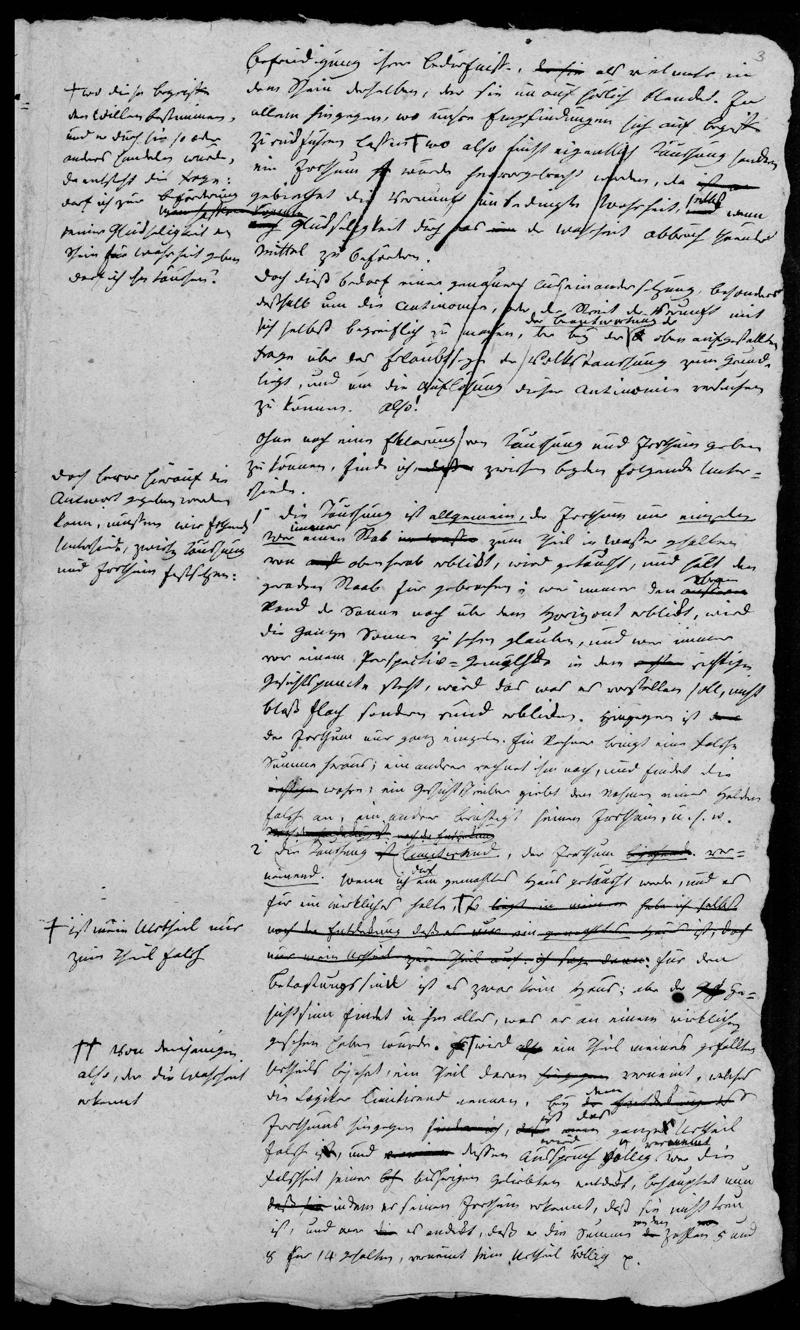 3
Befriedigung ihrer Bedürfniße, als vielmehr in
dem Schein derselben, der sie nun auf herrlich blendet. In
allem hingegen, wo unsre Empfindungen sich auf Begriffe
zurückführen lassen † wo also nicht eigentlich Täuschung sondern
ein Irrthum würde hervorgebracht werden, da
gebiethet die Vernunft unbedingte Wahrheit, sollte wenn
Glückseligkeit durch der Wahrheit abbruch thuende
Mittel zu befördern.
Doch dieß bedarf einer genauern Auseinandersetzung, besonders
deßhalb um die Antinomie, oder den Streit der Vernunft mit
sich selbst begreiflich zu machen, der bey der Beantwortung der oben aufgestellten
Frage über das Erlaubtseyn der Volkstäuschung zum Grund-
liegt, und um die Auflösung dieser Antinomie versuchen
zu können. Also!
Ohne noch eine Erklärung von Täuschung und Irrthum geben
zu können, finde ich zwischen beyden folgende Unter-
schiede.
1 Die Täuschung ist allgemein, der Irrthum nur einzeln
Wer immer einen Stab zum Theil in Wasser gehalten
von oben herab erblikt, wird getäuscht, und hält den
geraden Staab für gebrochen; wer immer den obern
Rand der Sonne noch über dem Horizont erblikt, wird
die ganze Sonne zu sehen glauben, und wer immer
vor einem Perspectiv-Gemählde in dem richtigen
Gesichtspuncte steht, wird das was es vorstellen soll, nicht
bloß flach sondern rund erbliken. Hingegen ist
der Irrthum nur ganz einzeln. Ein Rechner bringt eine falsche
Summe heraus; ein andrer rechnet ihm nach, und findet die
wahre; ein Geschichtschreiber giebt den Nahmen eines Helden
falsch an, ein andrer berichtigt seinen Irrthum, u. s. w.
2 Die Täuschung ist limitirend, der Irrthum ver-
neinend. Wenn ich durch ein gemahltes Haus getäuscht werde, und es
für ein wirkliches halte, † so
Für den
Betastungssinn ist es zwar kein Haus; aber der Ge-
sichtssinn findet in ihm alles, was er an einem wirklichen
gesehen haben würde. †† wird ein Theil meines gefällten
Urtheils bejahet, ein Theil davon verneint, welches
die Logiker limitirend nennen. Bey dem
Irrthume hingegen ist das ganze Urtheil
falsch, und wird dessen Ausspruch völlig verneint. Wer die
Falschheit seiner bisherigen Geliebten entdekt, behauptet nun
indem er seinen Irrthum erkennt, daß sie nicht treu
ist, und wer es entdekt, daß er die Summe von den Zahlen 5 und
8 für 14 gehalten, verneint sein Urtheil völlig
† wo diese Begriffe
den Willen bestimmen,
und er durch sie so oder
anders handeln würde,
da entsteht die Frage:
darf ich zur Beförderung
seiner Glückseligkeit den
Schein für Wahrheit geben
darf ich ihn täuschen?
Doch bevor hierauf die
Antwort gegeben werden
kann, müssen wir folgende
Unterschiede, zwischen Täuschung
und Irrthum festsetzen:
† ist mein Urtheil nur
zum Theil falsch
†† Von demjenigen
also, der die Wahrheit
erkennt